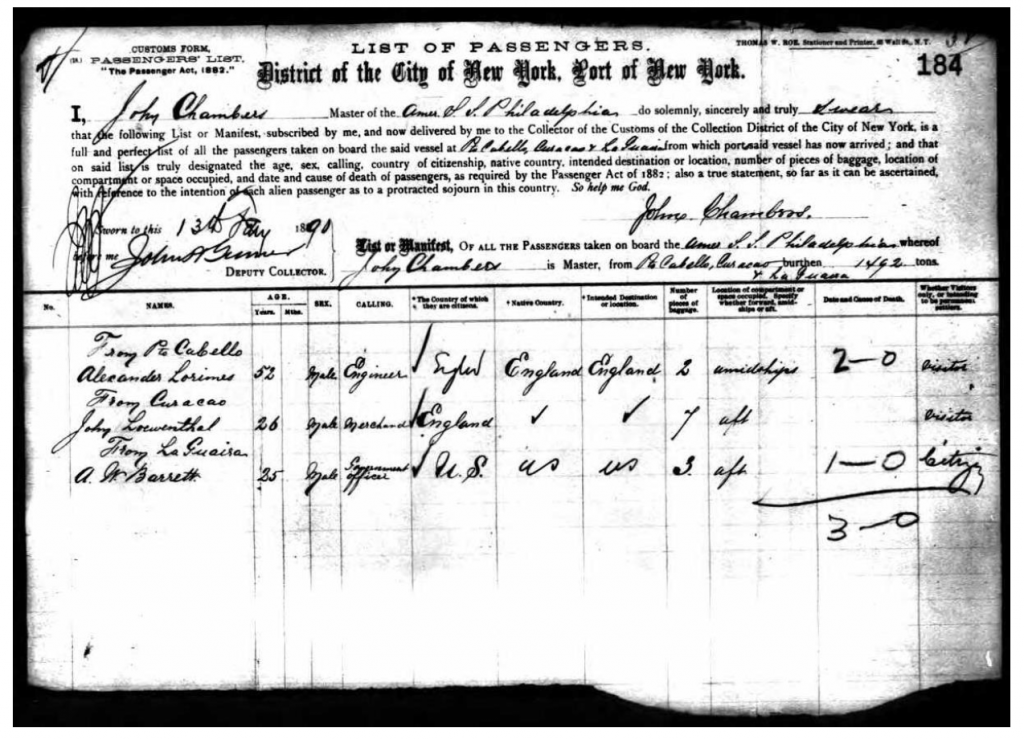 CUSTOMS FORM,
PASSENGERS' LIST.
"The Passenger Act, 1882."
LIST OF PASSENGERS.
THOMAS W. ROE, Stationer and Printer, Wall St., N.Y.
184
District of the City of New York, Port of New York.
I, John Chambers Master of the Amer S. S. Philadelphia do solemnly, sincerely and truly swear
that the following List or Manifest, subscribed by me, and now delivered by me to the Collector of the Customs of the Collection District of the City of New York, is a
full and perfect list of all the passengers taken on board the said vessel at Pto Cabello, Curacao & La Guaira from which port said vessel has now arrived; and that
on said list is truly designated the age, sex, calling, country of citizenship, native country, intended destination or location, number of pieces of baggage, location of
compartment or space occupied, and date and cause of death of passengers, as required by the Passenger Act of 1882; also a true statement, so far as it can be ascertained,
with reference to the intention of each alien passenger as to a protracted sojourn in this country. So help me God.
John Chambers.
Sworn to this 13th 1890
before me
DEPUTY COLLECTOR.
List or Manifest, OF ALL THE PASSENGERS taken on board the Amer S. S. Philadelphia whereof
John Chambers is Master, from Pto Cabello, Curacao burthen 1492 tons.
& La Guaira
No. NAMES. AGE. Years. Mths. SEX. CALLING. The Country of which they are citizens. Native Country. Intended Destination or location. Number of pieces of baggage. Location of compartment or space occupied. Specify whether forward, amidships or aft. Date and Cause of Death. Whether Visitors only, or intending to be permanent settlers.
From Pto Cabello
Alexander Lorimer 52 Male Engineer England England 2 amidships 2-0 Visitor
From Curacao
John Loewenthal 26 Male Merchant England ✓ ✓ 7 aft Visitor
From La Guaira
A. W. Barrett 25 Male Government officer U.S. US US 3 aft 1-0 Citizen
3-0